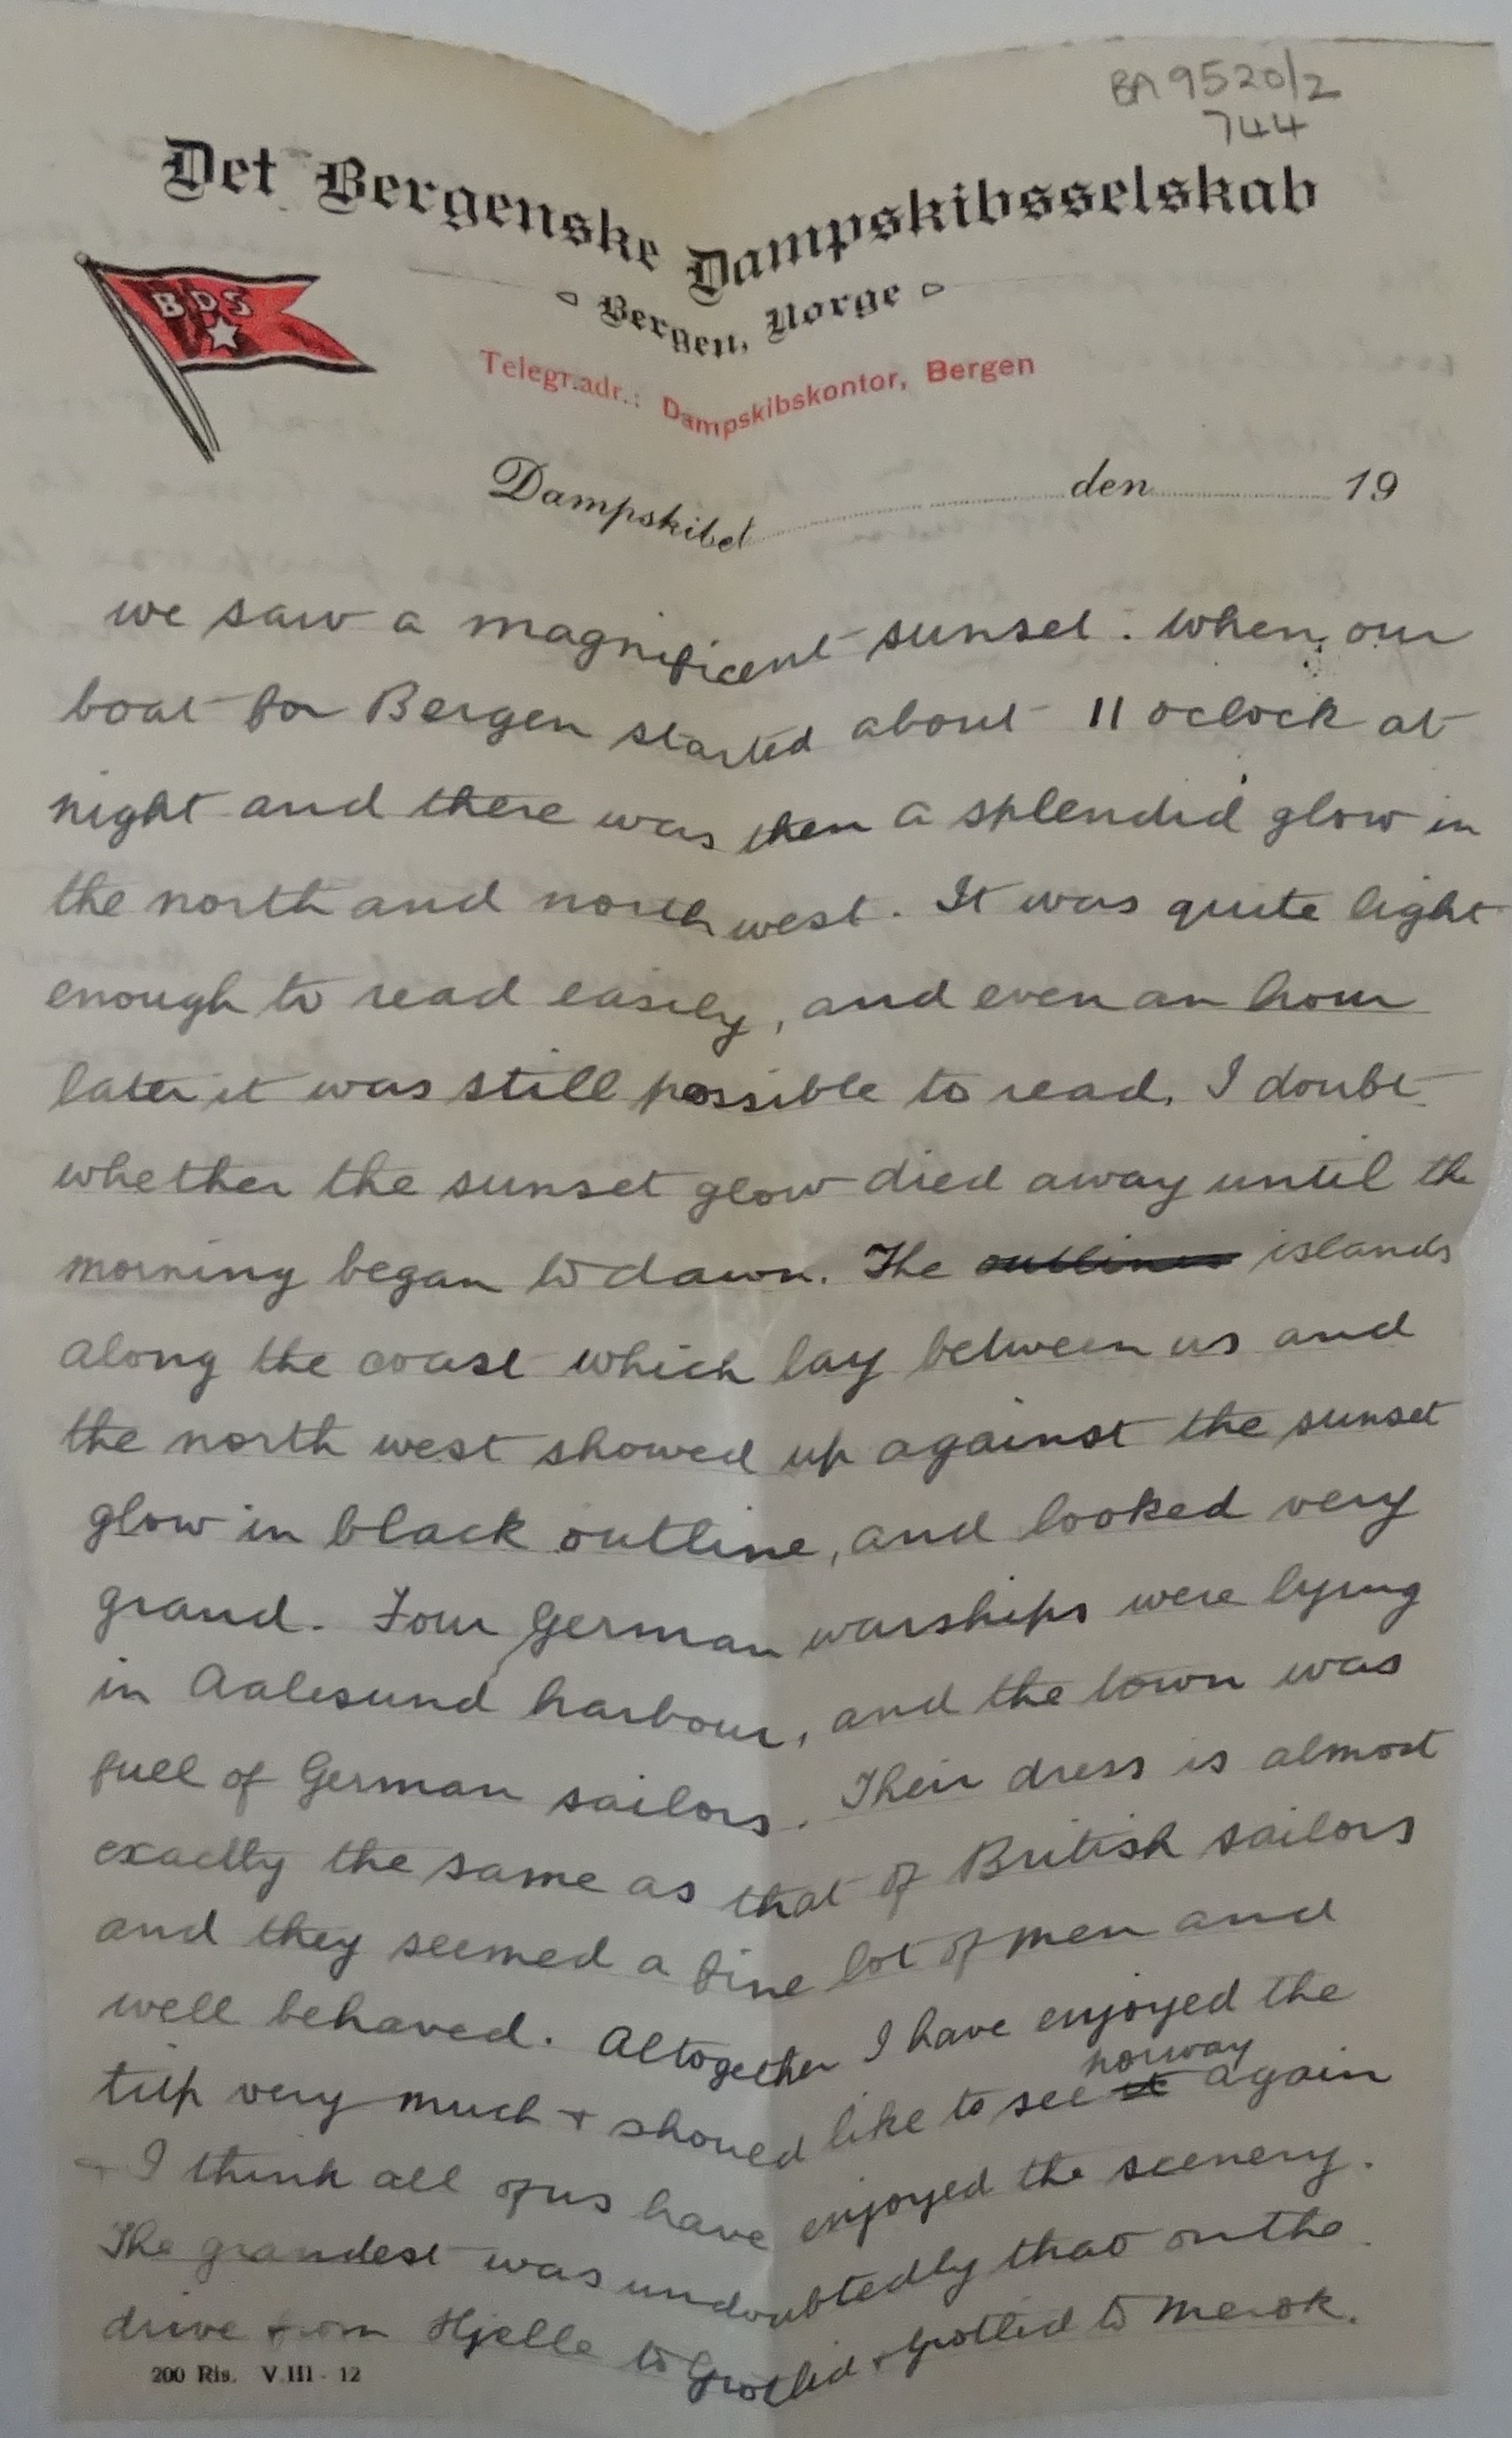 BA 9520/2
744
Det Bergenske Dampskibsselskab
Bergen, Norge
BDS
Telegr.adr.: Dampskibskontor, Bergen
Dampskibet den 19
we saw a magnificent sunset. When our
boat for Bergen started about 11 oclock at
night and there was then a splendid glow in
the north and north west. It was quite light
enough to read easily, and even an hour
later it was still possible to read. I doubt
whether the sunset glow died away until the
morning began to dawn. The outlines islands
along the coast which lay between us and
the north west showed up against the sunset
glow in black outline, and looked very
grand. Four German warships were lying
in Aalesund harbour, and the town was
full of German sailors. Their dress is almost
exactly the same as that of British sailors
and they seemed a fine lot of men and
well behaved. Altogether I have enjoyed the
trip very much + should like to see it norway again
+ I think all of us have enjoyed the scenery.
The grandest was undoubtedly that on the
drive from Hjelle to Grotlid + Grotlid to Merok.
200 Ris. V.III - 12